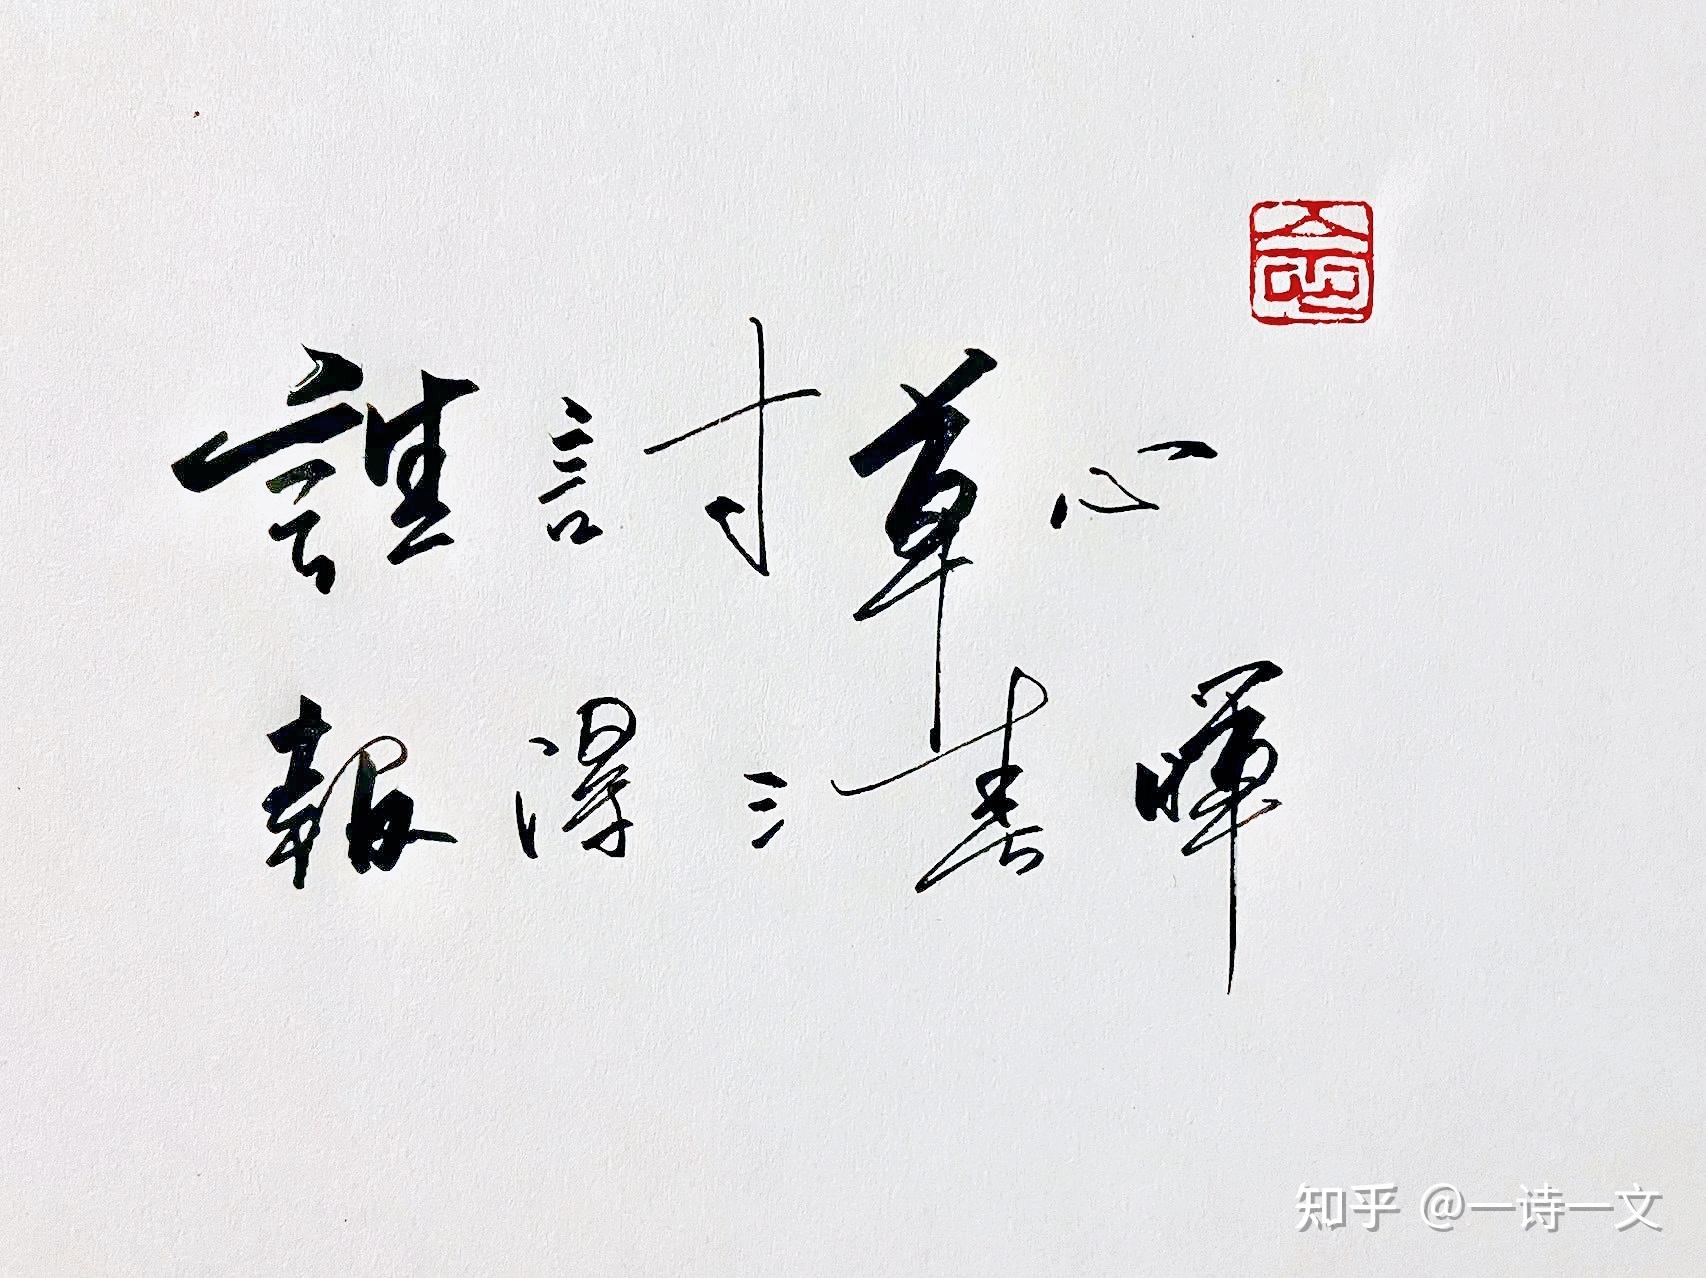 誰言寸草心
報得三春暉
知乎 @一诗一文